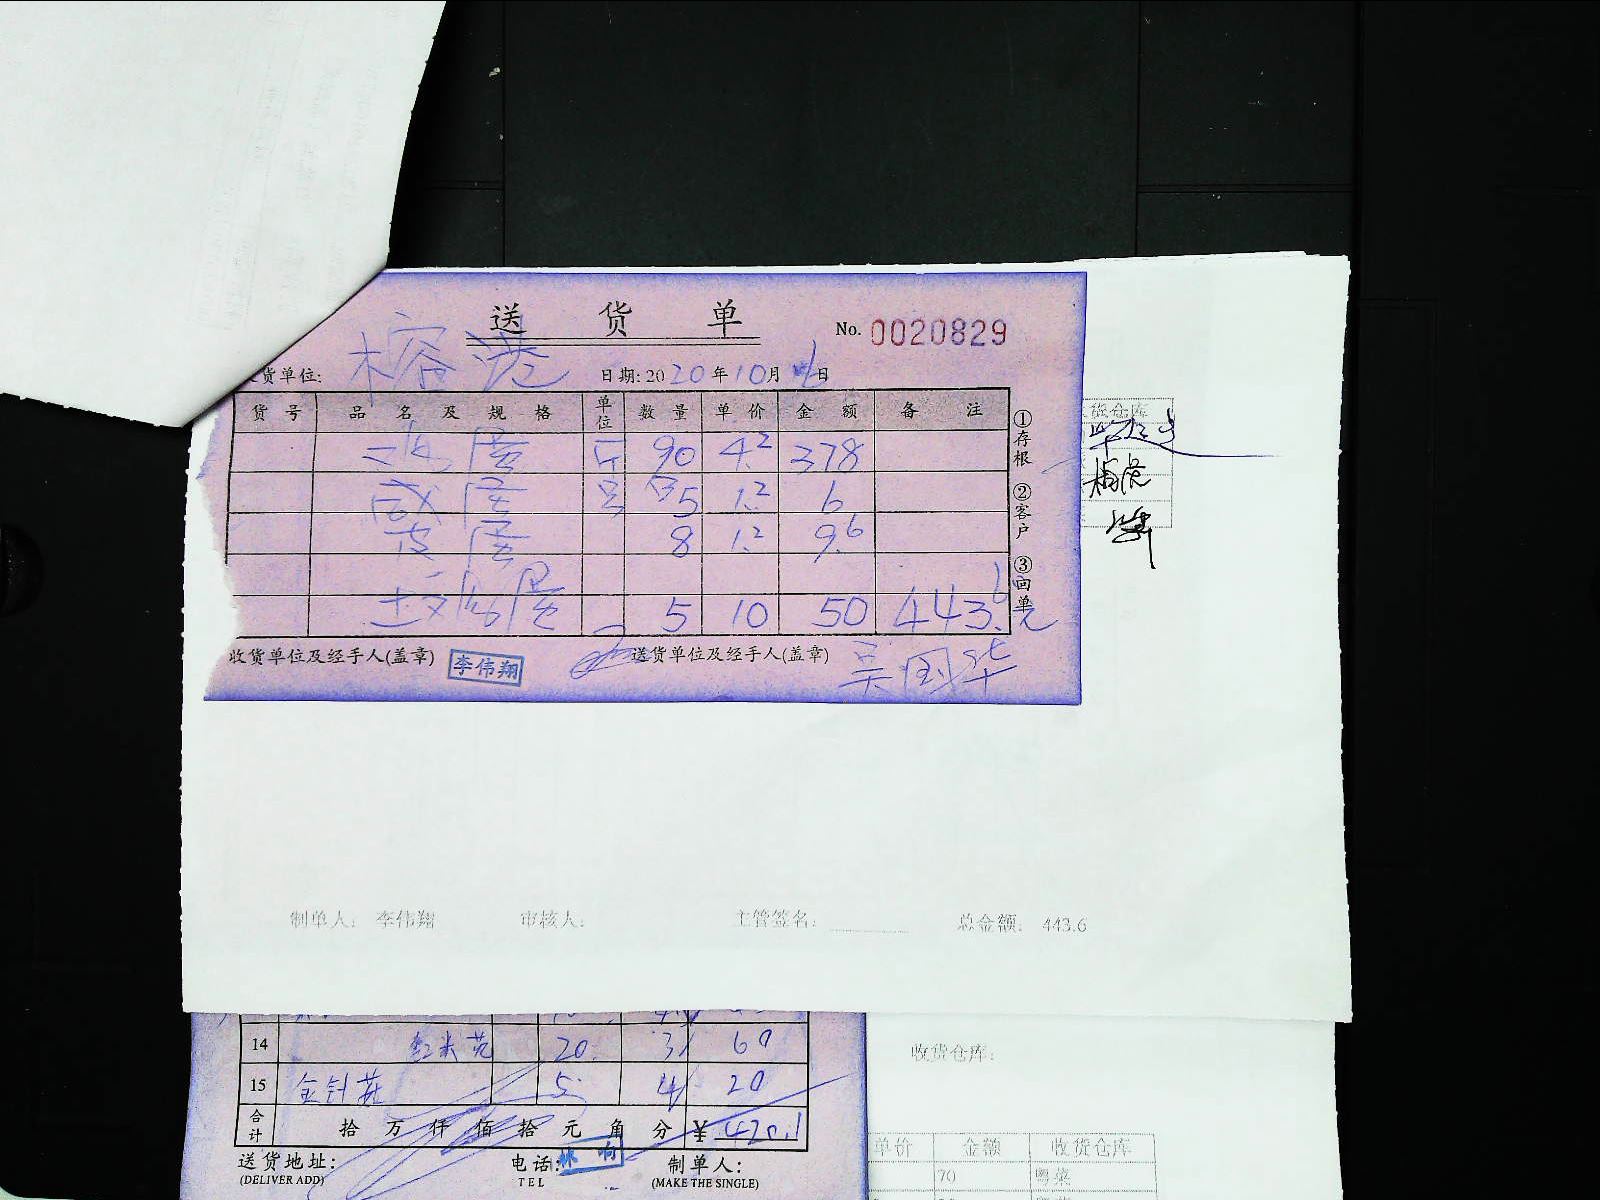 送 货 单
No. 0020829
货单位: 榕港
日期: 2020年10月6日
货号 品名及规格 单位 数量 单价 金额 备注
鸡蛋 斤 90 4.2 378
咸蛋 5 1.2 6
皮蛋 8 1.2 9.6
土鸡蛋 5 10 50 443.6元
①存根 ②客户 ③回单
收货单位及经手人(盖章) 李伟翔 送货单位及经手人(盖章) 吴国华
货仓库
制单人: 李伟翔 审核人: 主管签名: 总金额: 443.6
14 红米苋 20 3 60
15 金针菇 5 4 20
合计 拾 万 仟 佰 拾 元 角 分 ¥420.1
送货地址: 电话: 制单人:
(DELIVER ADD) TEL (MAKE THE SINGLE)
收货仓库:
单价 金额 收货仓库
70 粤菜